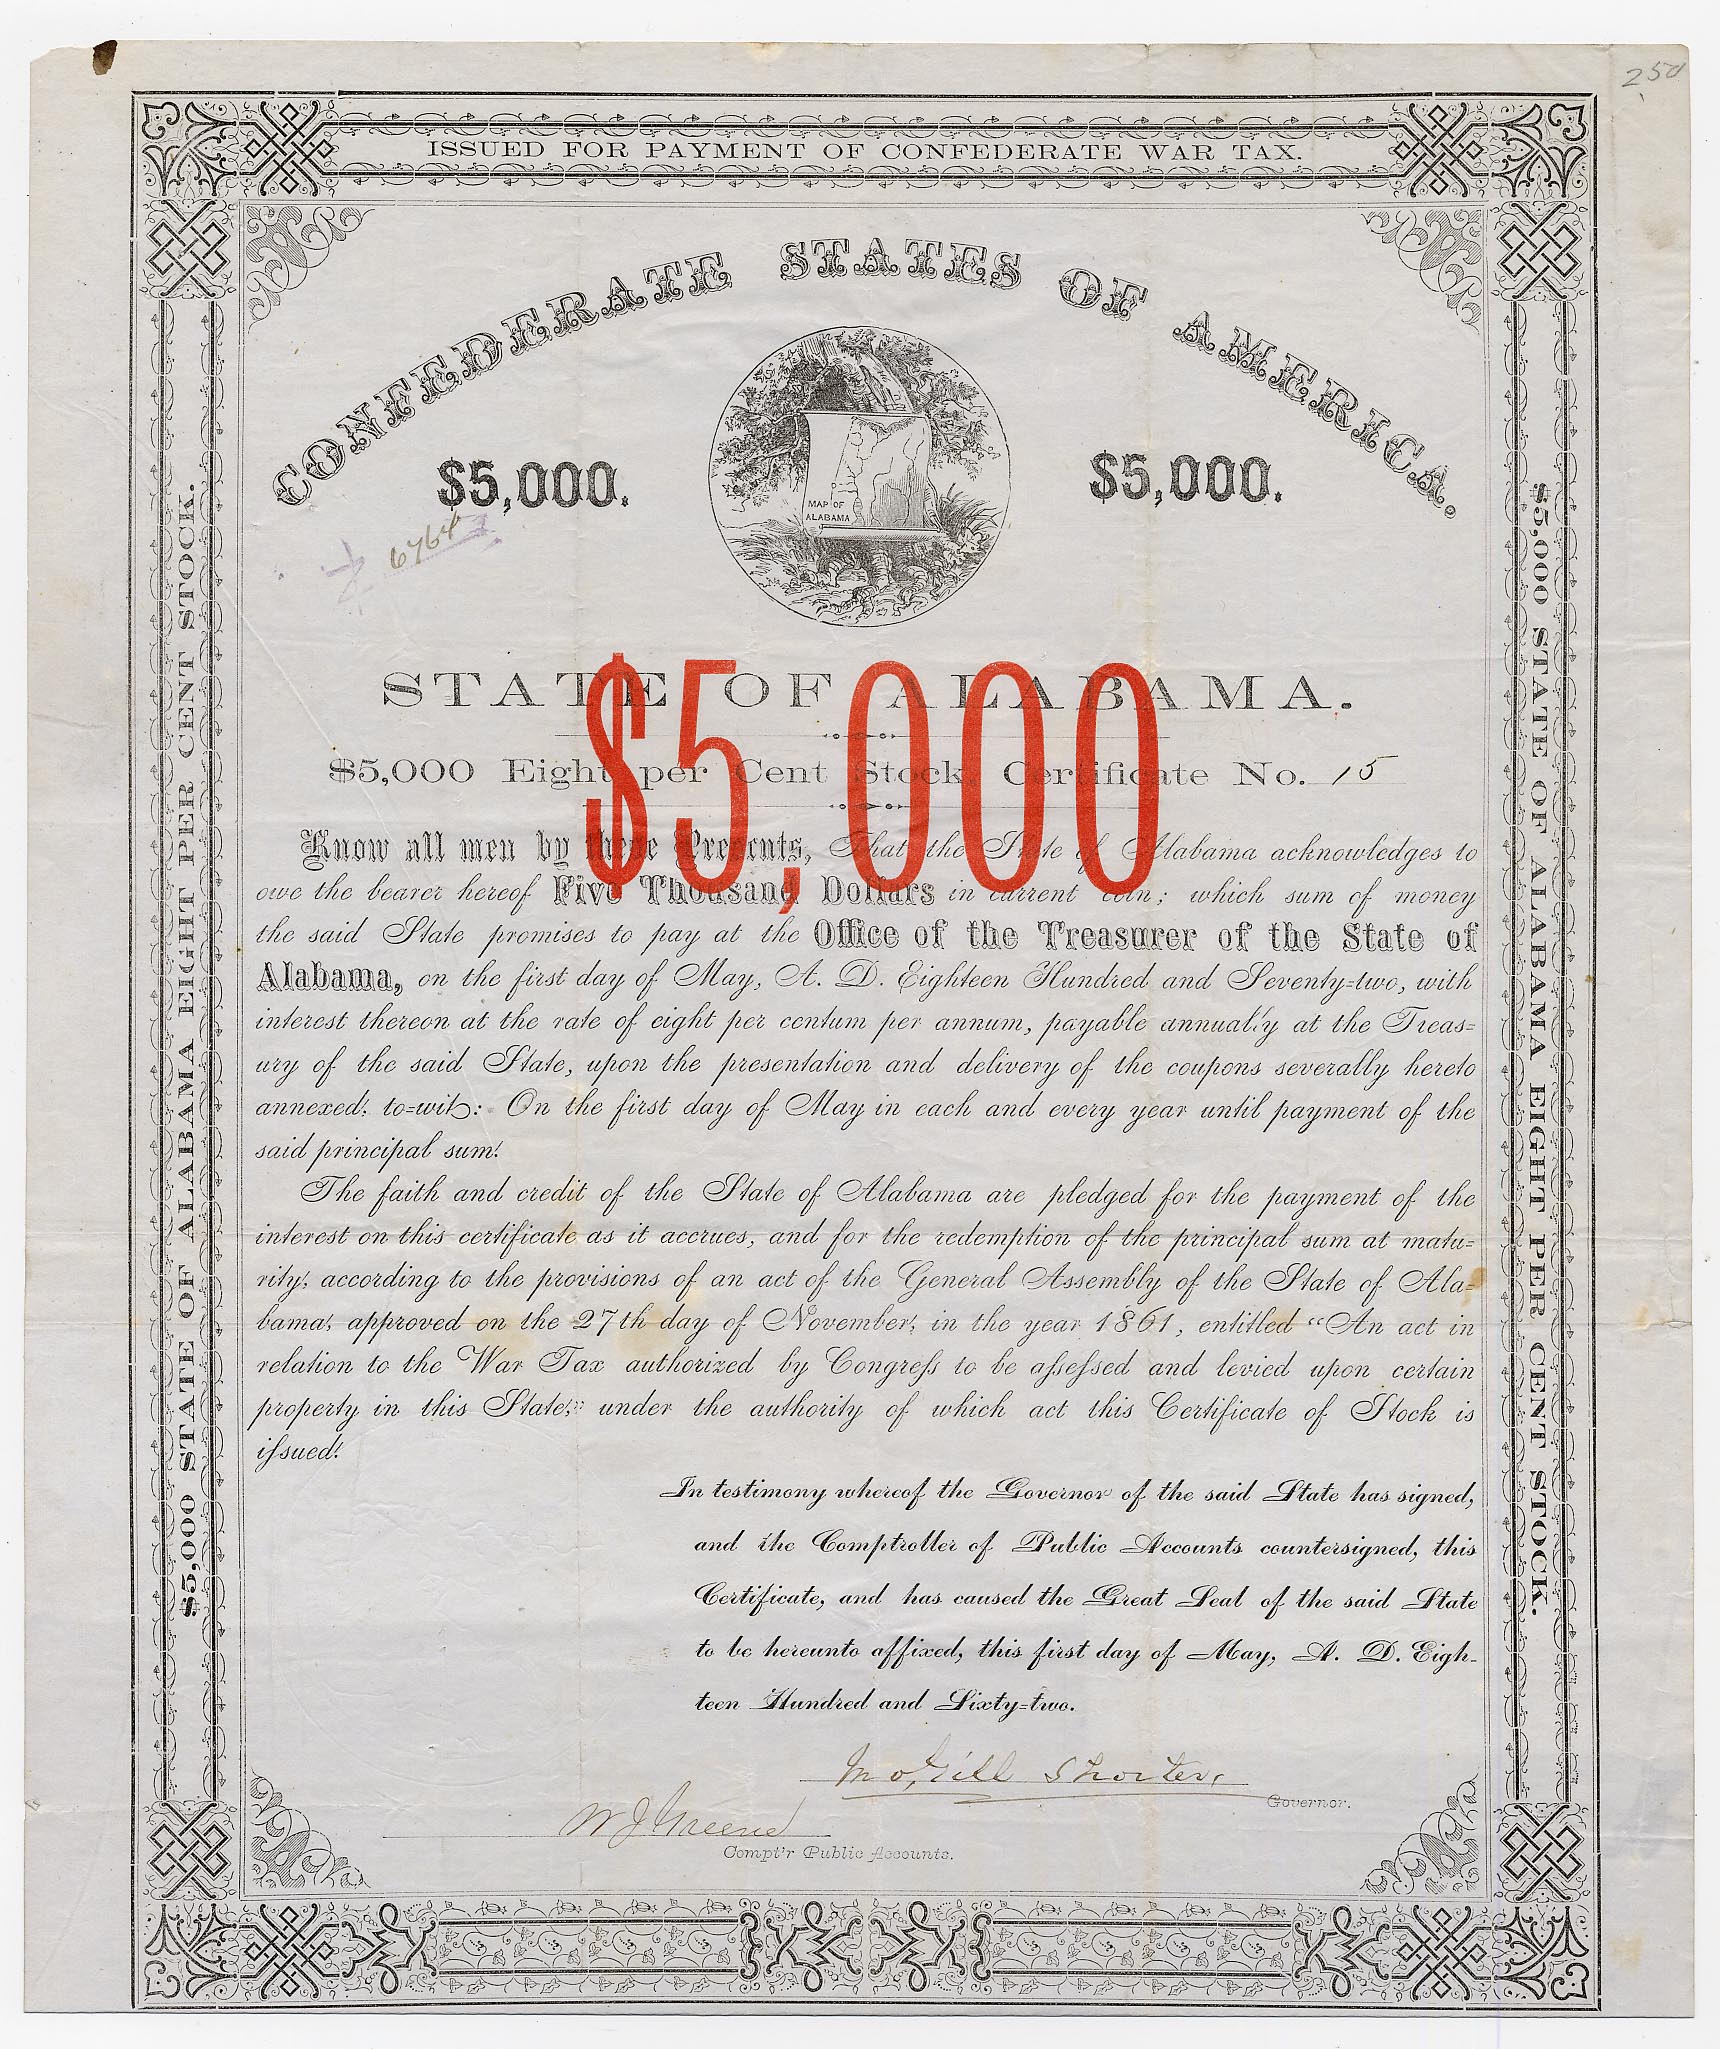 250
ISSUED FOR PAYMENT OF CONFEDERATE WAR TAX.
CONFEDERATE STATES OF AMERICA.
$5,000.
$5,000.
6764
MAP OF
ALABAMA
STATE OF ALABAMA.
$5,000
$5,000 Eight per Cent Stock, Certificate No. 15
Know all men by these Presents, That the State of Alabama acknowledges to
owe the bearer hereof Five Thousand Dollars in current coin; which sum of money
the said State promises to pay at the Office of the Treasurer of the State of
Alabama, on the first day of May, A. D. Eighteen Hundred and Seventy-two, with
interest thereon at the rate of eight per centum per annum, payable annually at the Treas-
ury of the said State, upon the presentation and delivery of the coupons severally hereto
annexed, to-wit: On the first day of May in each and every year until payment of the
said principal sum.
The faith and credit of the State of Alabama are pledged for the payment of the
interest on this certificate as it accrues, and for the redemption of the principal sum at matu-
rity, according to the provisions of an act of the General Assembly of the State of Ala-
bama, approved on the 27th day of November, in the year 1861, entitled "An act in
relation to the War Tax authorized by Congreſs to be aſseſsed and levied upon certain
property in this State," under the authority of which act this Certificate of Stock is
iſsued.
In testimony whereof the Governor of the said State has signed,
and the Comptroller of Public Accounts countersigned, this
Certificate, and has caused the Great Seal of the said State
to be hereunto affixed, this first day of May, A. D. Eigh-
teen Hundred and Sixty-two.
Jno. Gill Shorter,
Governor.
W J Greene
Compt'r Public Accounts.
$5,000 STATE OF ALABAMA EIGHT PER CENT STOCK.
$5,000 STATE OF ALABAMA EIGHT PER CENT STOCK.